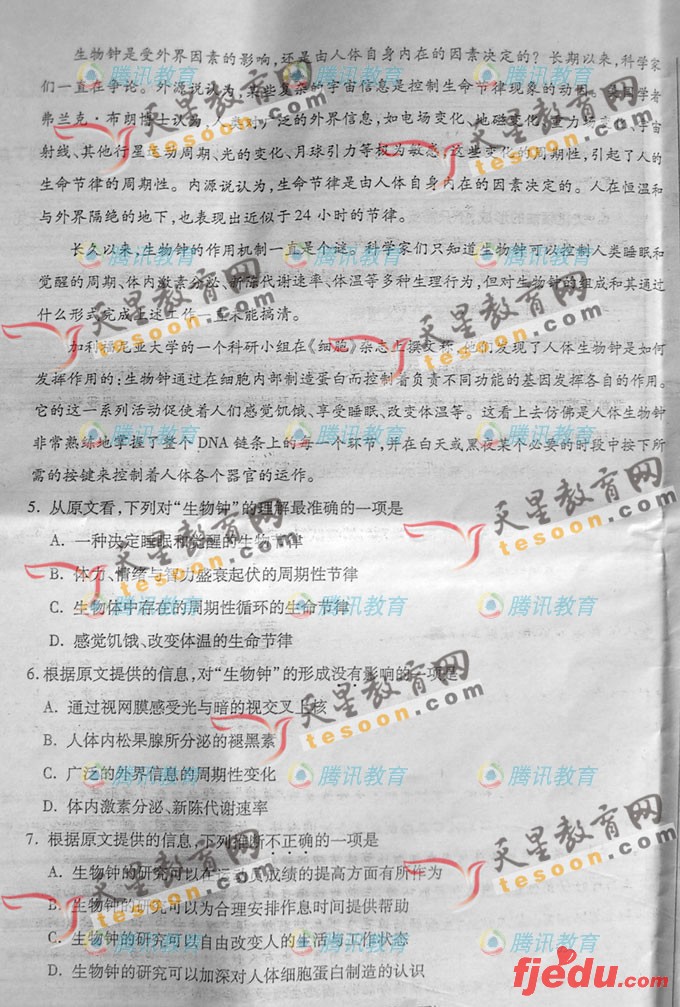 生物钟是受外界因素的影响,还是由人体自身内在的因素决定的?长期以来,科学家
们一直在争论。外源说认为,某些复杂的宇宙信息是控制生命节律现象的动因。美国学者
弗兰克·布朗博士认为,人类对广泛的外界信息,如电场变化、地磁变化、重力场变化、宇宙
射线、其他行星运动周期、光的变化、月球引力等极为敏感,这些变化的周期性,引起了人的
生命节律的周期性。内源说认为,生命节律是由人体自身内在的因素决定的。人在恒温和
与外界隔绝的地下,也表现出近似于24小时的节律。
长久以来,生物钟的作用机制一直是个谜。科学家们只知道生物钟可以控制人类睡眠和
觉醒的周期、体内激素分泌、新陈代谢速率、体温等多种生理行为,但对生物钟的组成和其通过
什么形式完成上述工作一直未能搞清。
加利福尼亚大学的一个科研小组在《细胞》杂志上撰文称,他们发现了人体生物钟是如何
发挥作用的:生物钟通过在细胞内部制造蛋白而控制着负责不同功能的基因发挥各自的作用。
它的这一系列活动促使着人们感觉饥饿、享受睡眠、改变体温等。这看上去仿佛是人体生物钟
非常熟练地掌握了整个DNA链条上的每一个环节,并在白天或黑夜某个必要的时段中按下所
需的按键来控制着人体各个器官的运作。
5. 从原文看,下列对“生物钟”的理解最准确的一项是
A. 一种决定睡眠和觉醒的生物节律
B. 体力、情绪与智力盛衰起伏的周期性节律
C. 生物体中存在的周期性循环的生命节律
D. 感觉饥饿、改变体温的生命节律
6. 根据原文提供的信息,对“生物钟”的形成没有影响的一项是
A. 通过视网膜感受光与暗的视交叉上核
B. 人体内松果腺所分泌的褪黑素
C. 广泛的外界信息的周期性变化
D. 体内激素分泌、新陈代谢速率
7. 根据原文提供的信息,下列推断不正确的一项是
A. 生物钟的研究可以在运动员成绩的提高方面有所作为
B. 生物钟的研究可以为合理安排作息时间提供帮助
C. 生物钟的研究可以自由改变人的生活与工作状态
D. 生物钟的研究可以加深对人体细胞蛋白制造的认识
腾讯教育
天星教育网
tesoon.com
fjedu.com